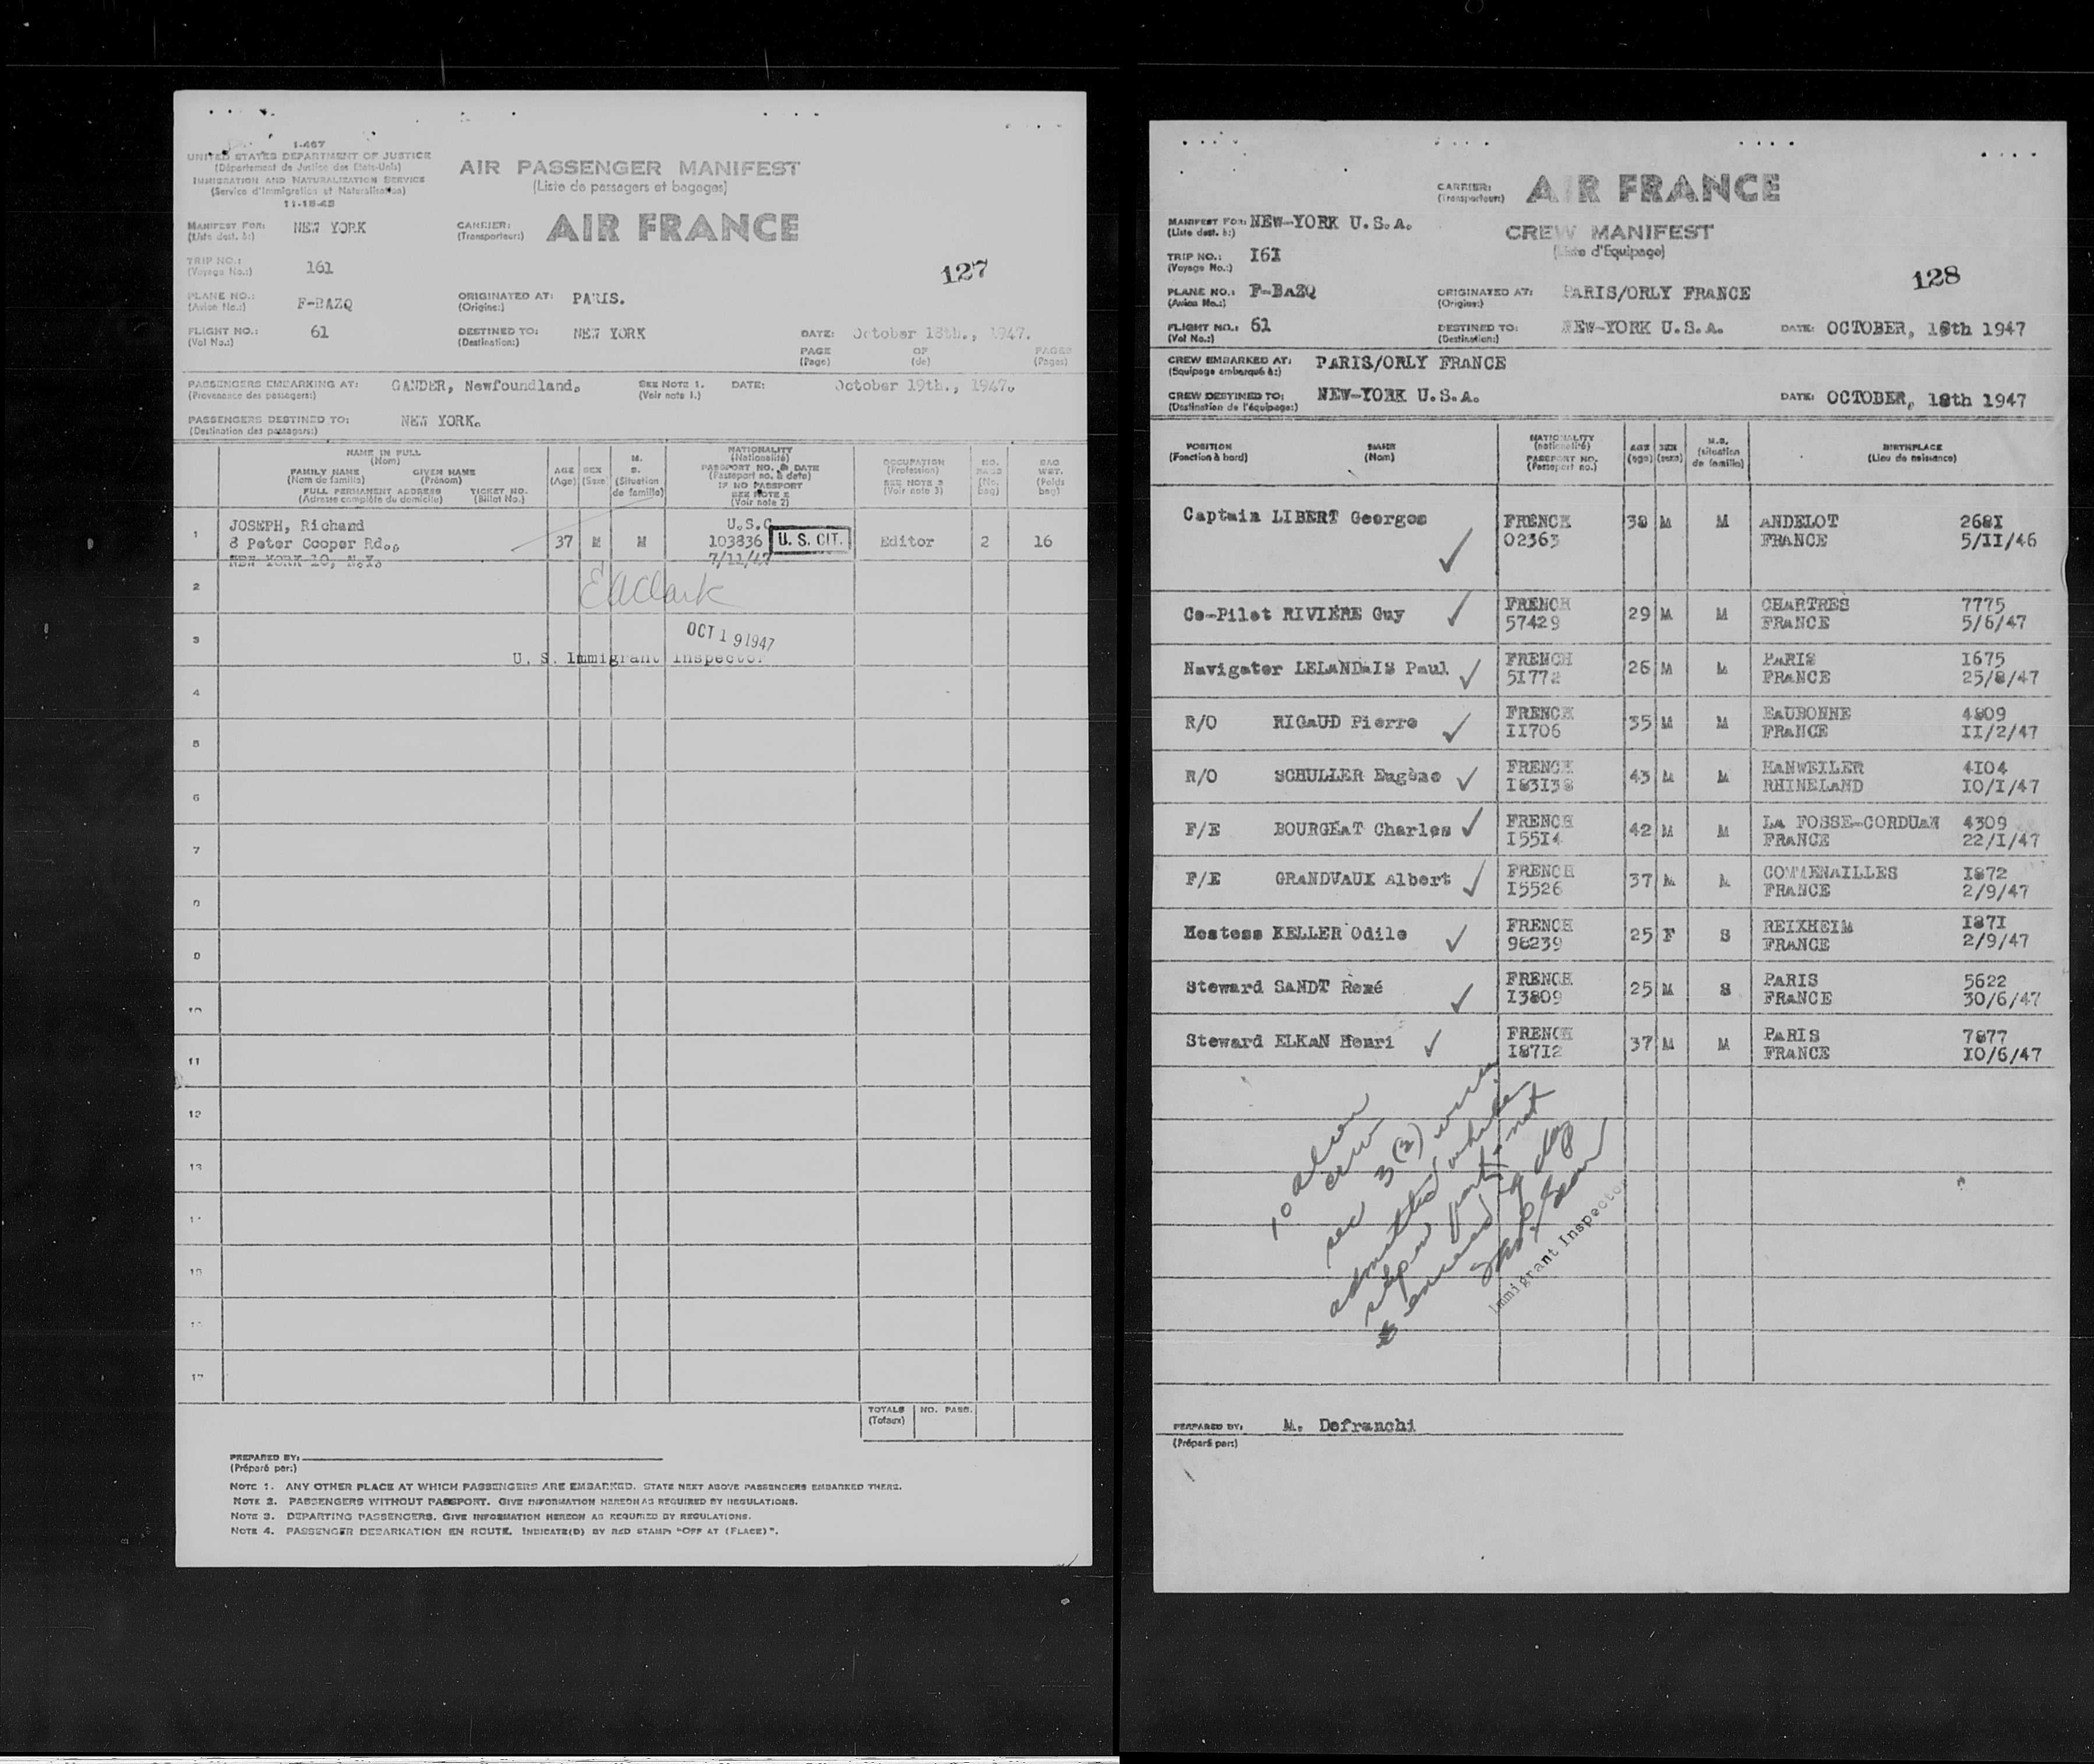 I-467
UNITED STATES DEPARTMENT OF JUSTICE
(Département de Justice des Etats-Unis)
IMMIGRATION AND NATURALIZATION SERVICE
(Service d'Immigration et Naturalisation)
11-15-45
AIR PASSENGER MANIFEST
(Liste de passagers et bagages)
MANIFEST FOR: NEW YORK
(Liste dest. à:)
CARRIER: AIR FRANCE
(Transporteur:)
TRIP NO.: 161
(Voyage No.:)
127
PLANE NO.: F-BAZQ
(Avion No.:)
ORIGINATED AT: PARIS.
(Origine:)
FLIGHT NO.: 61
(Vol No.:)
DESTINED TO: NEW YORK
(Destination:)
DATE: October 18th., 1947.
PAGE OF PAGES
(Page) (de) (Pages)
PASSENGERS EMBARKING AT: GANDER, Newfoundland. SEE NOTE 1. DATE: October 19th., 1947.
(Provenance des passagers:) (Voir note 1.)
PASSENGERS DESTINED TO: NEW YORK.
(Destination des passagers:)
NAME IN FULL
(Nom)
FAMILY NAME GIVEN NAME
(Nom de famille) (Prénom)
FULL PERMANENT ADDRESS TICKET NO.
(Adresse complète du domicile) (Billet No.)
AGE
(Age)
SEX
(Sexe)
M.
S.
(Situation
de famille)
NATIONALITY
(Nationalité)
PASSPORT NO. & DATE
(Passeport no. & date)
IF NO PASSPORT
SEE NOTE 2
(Voir note 2)
OCCUPATION
(Profession)
SEE NOTE 3
(Voir note 3)
NO.
BAGS
(No.
bag)
BAG
WGT.
(Poids
bag)
1
JOSEPH, Richard
8 Peter Cooper Rd.,
NEW YORK 10, N.Y.
37 M M
U.S.C
103836
7/11/47
U. S. CIT.
Editor 2 16
2
EAClark
3
OCT 19 1947
U. S. Immigrant Inspector
4
5
6
7
8
9
10
11
12
13
14
15
16
17
TOTALS NO. PASS.
(Totaux)
PREPARED BY:
(Préparé par:)
NOTE 1. ANY OTHER PLACE AT WHICH PASSENGERS ARE EMBARKED. STATE NEXT ABOVE PASSENGERS EMBARKED THERE.
NOTE 2. PASSENGERS WITHOUT PASSPORT. GIVE INFORMATION HEREON AS REQUIRED BY REGULATIONS.
NOTE 3. DEPARTING PASSENGERS. GIVE INFORMATION HEREON AS REQUIRED BY REGULATIONS.
NOTE 4. PASSENGER DEBARKATION EN ROUTE. INDICATE(D) BY RED STAMP: "OFF AT (PLACE)".
CARRIER: AIR FRANCE
(Transporteur:)
MANIFEST FOR: NEW-YORK U.S.A.
(Liste dest. à:)
CREW MANIFEST
(Liste d'Equipage)
TRIP NO.: I6I
(Voyage No.:)
128
PLANE NO.: F-BAZQ
(Avion No.:)
ORIGINATED AT: PARIS/ORLY FRANCE
(Origine:)
FLIGHT NO.: 61
(Vol No.:)
DESTINED TO: NEW-YORK U.S.A.
(Destination:)
DATE: OCTOBER, 18th 1947
CREW EMBARKED AT: PARIS/ORLY FRANCE
(Equipage embarqué à:)
CREW DESTINED TO: NEW-YORK U.S.A.
(Destination de l'équipage:)
DATE: OCTOBER, 18th 1947
POSITION
(Fonction à bord)
NAME
(Nom)
NATIONALITY
(nationalité)
PASSPORT NO.
(Passeport no.)
AGE
(age)
SEX
(sexe)
M.S.
(situation
de famille)
BIRTHPLACE
(Lieu de naissance)
Captain LIBERT Georges FRENCH 38 M M ANDELOT 268I
02363 FRANCE 5/II/46
Co-Pilot RIVIÉRE Guy FRENCH 29 M M CHARTRES 7775
57429 FRANCE 5/6/47
Navigator LELANDAIS Paul FRENCH 26 M M PARIS I675
5I772 FRANCE 25/8/47
R/O RIGAUD Pierre FRENCH 35 M M EAUBONNE 4809
II706 FRANCE II/2/47
R/O SCHULLER Eugène FRENCH 43 M M HANWEILER 4I04
I83I38 RHINELAND IO/I/47
F/E BOURGEAT Charles FRENCH 42 M M LA FOSSE-CORDUAN 4309
I55I4 FRANCE 22/I/47
F/E GRANDVAUX Albert FRENCH 37 M M COMMENAILLES I872
I5526 FRANCE 2/9/47
Hostess KELLER Odile FRENCH 25 F S REIXHEIM I87I
98239 FRANCE 2/9/47
Steward SANDT René FRENCH 25 M S PARIS 5622
I3809 FRANCE 30/6/47
Steward ELKAN Henri FRENCH 37 M M PARIS 7877
I87I2 FRANCE IO/6/47
10 alien
crew
sec 3(2) were
admitted while
in port not
to exceed 29 days
Immigrant Inspector
PREPARED BY: M. Defranchi
(Préparé par:)